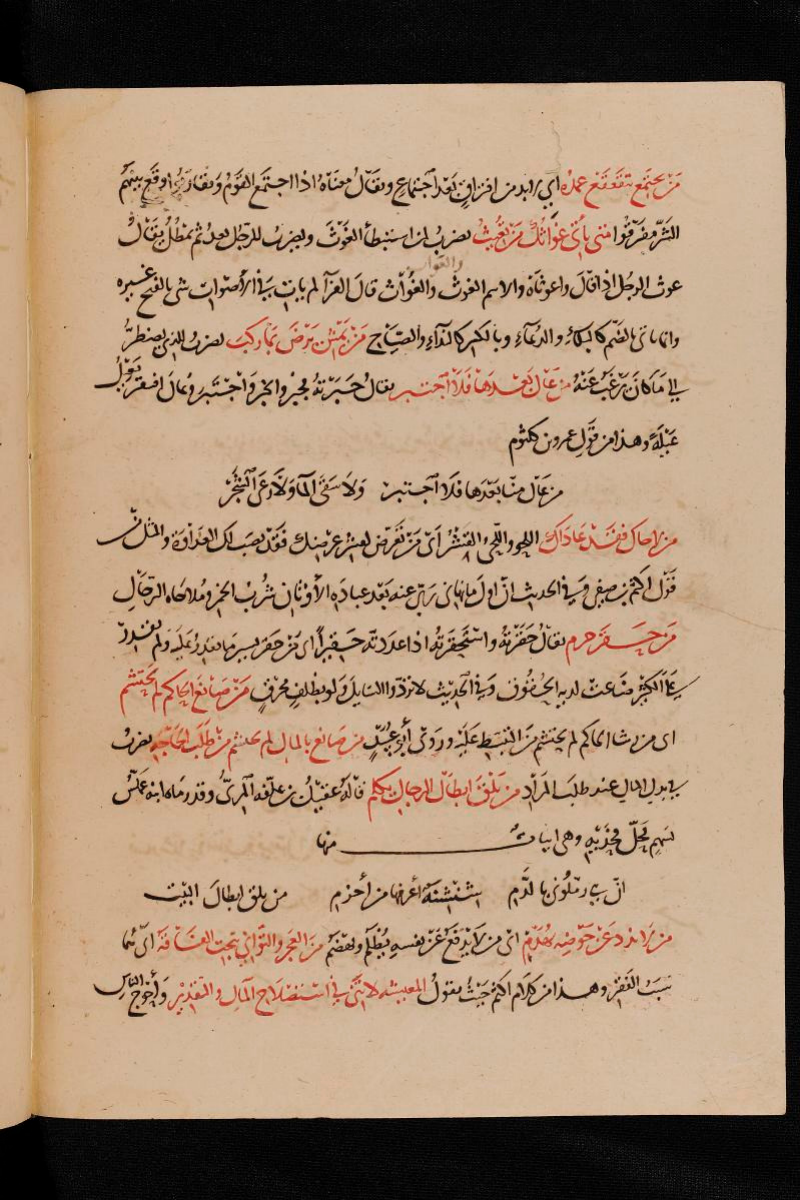 من يجتمع تتقعقع عمده اي لا بد من افتراق بعد اجتماع ويقال معناه اذا اجتمع القوم وتقاربوا وقع بينهم
الشر وتفرقوا متى يأتي غواثك من تغيث يضرب لمن استبطأ الغوث ويضرب للرجل يعد ثم يمطل يقال
والغواث
غوث الرجل اذا قال واغوثاه والاسم الغوث والغواث قال الفرآ لم يات في الاصوات شي بالفتح غيره
وانما ياتي بالضم كالبكاء والدعآء وبالكسر كالندآء والصياح من يمش يرض بما ركب يضرب للذي يضطر
الي ما كان يرغب عنه من عال بعدها فلا اجتبر يقال جبرته فجبر وانجبر واجتبر وعال افتقر يعول
عيلة وهذا من قول عمرو بن كلثوم
من عال منا بعدها فلا اجتبر ولا سقى المآ ولا رعى الشجر
من لاحاك فقد عاداك اللحو واللحي القشر اي من تعرض لقشر عرضك فقد نصب لك العداوة والمثل من
قول اكثم بن صيفي وفي الحديث ان اول ما نهاني ربي عنه بعد عبادة الاوثان شرب الخمر وملاحاه الرجال
من حقر حرم يقال حقرته واستحقرته اذا عددته حقيراً اي من حقر يسير ما يقدر عليه ولم يقدر
علي الكثير ضاعت لديه الحقوق وفي الحديث لا تردوا السايل ولو بظلف محرق من صانع الحاكم لم يحتشم
اي من رشا الحاكم لم يحتشم من التبسط عليه وروى أبو عبيد من صانع بالمال لم يحتشم من طلب الحاجة يضرب
في بذل المال عند طلب المراد من يلق ابطال الرجال يكلم قاله عقيل بن علفه المري وقد رماه ابنه عملس
بسهم فحل فخذيه وهي ابيات منها
ان بني رملوني بالدم شنشنة أعرفها من أخزم من يلق ابطال البيت
من لا يذد عن حوضه يهدم اي من لا يدفع عن نفسه يظلم ويهضم من العجز والتواني نتجت الفاقة اي هما
سبب الفقر وهذا من كلام اكثم حيث يقول المعيشه لا تني في استصلاح المال والتقدير وأحوج الناس